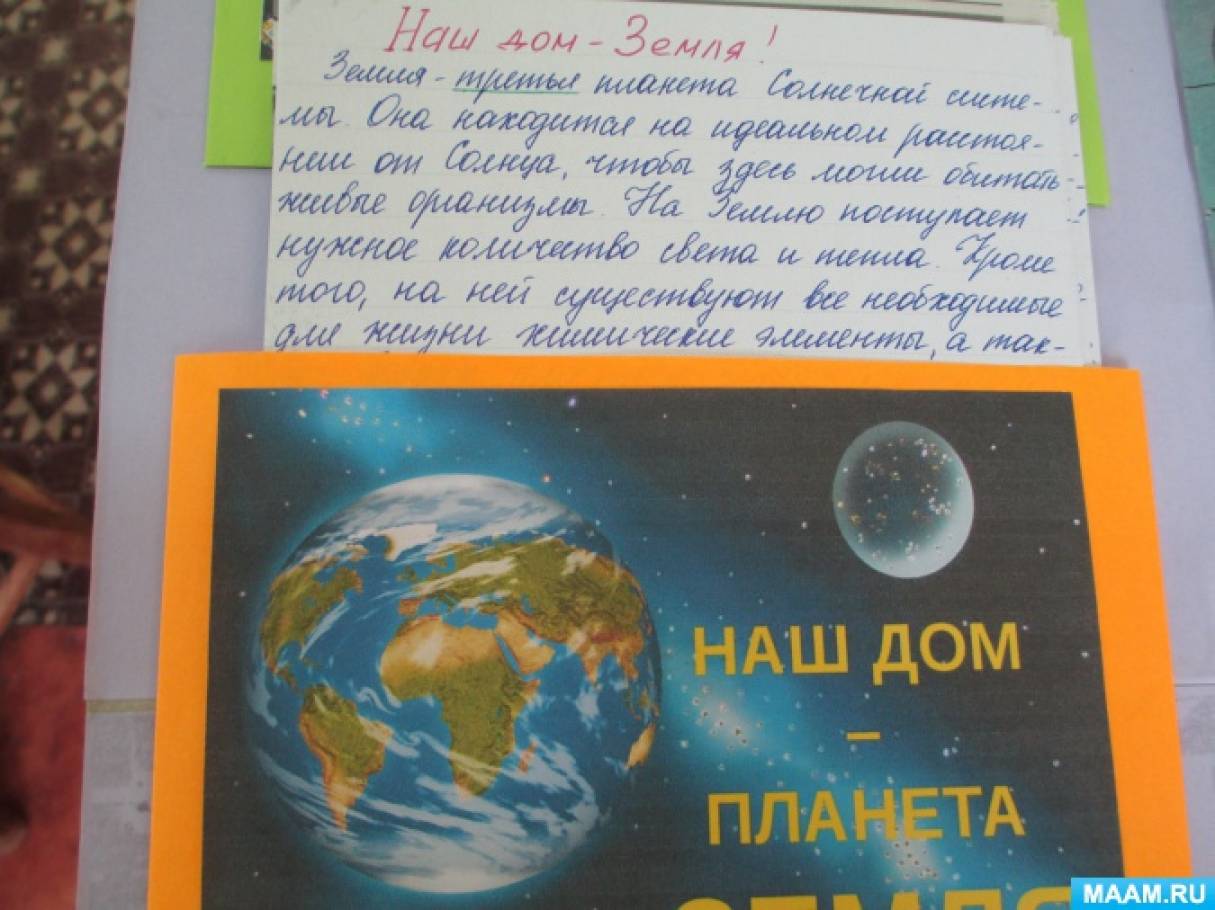 Наш дом - Земля!
Земля - третья планета Солнечной систе-
мы. Она находится на идеальном расстоя-
нии от Солнца, чтобы здесь могли обитать
живые организмы. На Землю поступает
нужное количество света и тепла. Кроме
того, на ней существуют все необходимые
для жизни химические элементы, а так-
НАШ ДОМ
–
ПЛАНЕТА
ЗЕМЛЯ
MAAM.RU